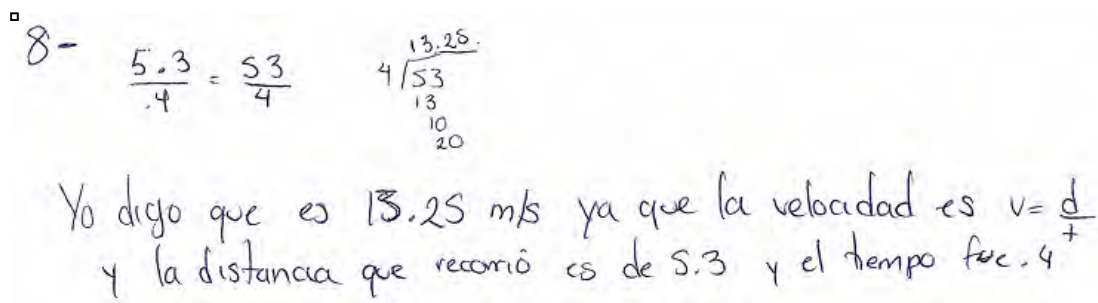 8- 5.3/.4 = 53/4
13.25.
4√53
13
10
20
Yo digo que es 13.25 m/s ya que la velocidad es v= d/t
y la distancia que recorrió es de 5.3 y el tiempo fue .4